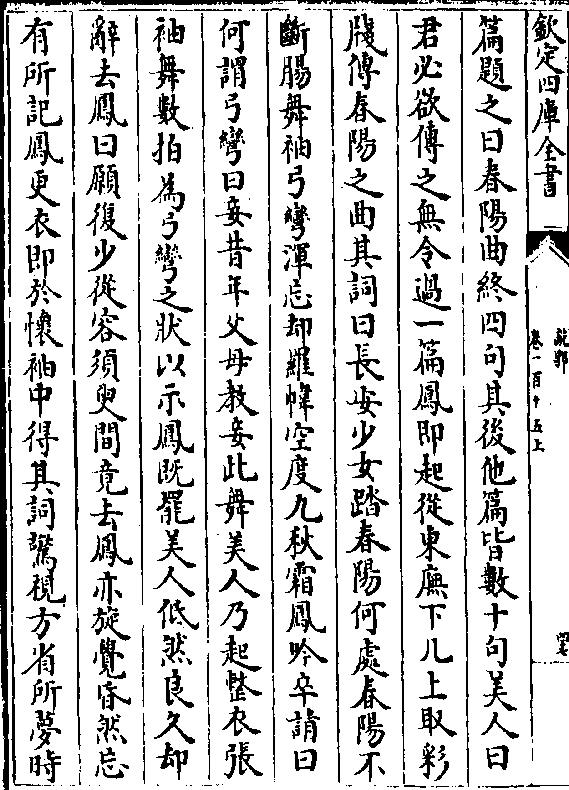 欽定四庫全書
說郛
卷一百十五上
篇題之曰春陽曲終四句其後他篇皆數十句美人曰
君必欲傳之無令過一篇鳳即起從東廡下几上取彩
牋傳春陽之曲其詞曰長安少女踏春陽何處春陽不
斷腸舞袖弓彎渾忘却羅幃空度九秋霜鳳吟卒請曰
何謂弓彎曰妾昔年父母教妾此舞美人乃起整衣張
袖舞數拍為弓彎之狀以示鳳既罷美人低然良久却
辭去鳳曰願復少從容須臾間竟去鳳亦旋覺昏然忘
有所記鳳更衣即於懷袖中得其詞驚視方省所夢時